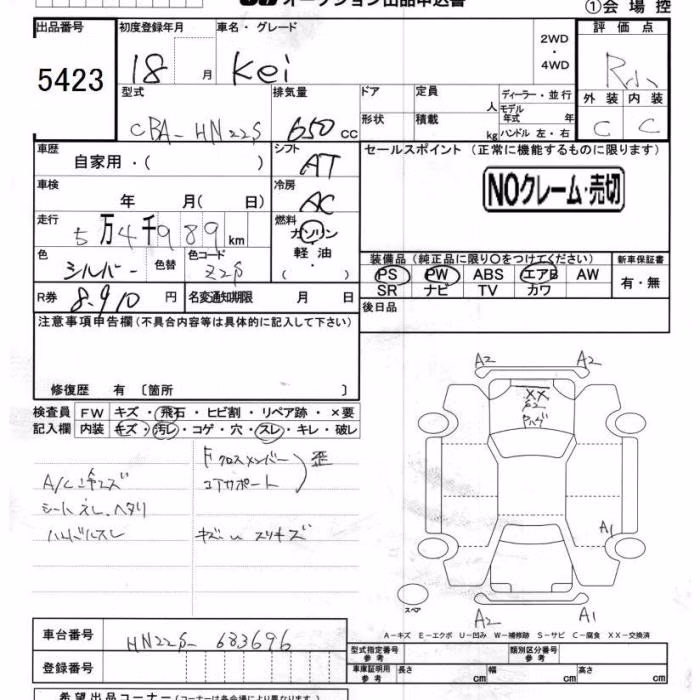 オークション出品申込書
①会場控
出品番号 初度登録年月 車名・グレード 2WD・4WD 評価点
5423 18 月 Kei R
型式 排気量 ドア 定員 人 ディーラー・並行 外装 内装
CBA-HN22S 650 cc 形状 積載 kg モデル年式 年 ハンドル 左・右 C C
車歴 シフト セールスポイント (正常に機能するものに限ります)
自家用・( ) AT
車検 冷房 NOクレーム・売切
年 月(日) AC
走行 燃料
5万4千989km ガソリン
色 色替 色コード 軽油 装備品(純正品に限り〇をつけてください) 新車保証書
シルバー Z2S ( ) PS PW ABS エアB AW 有・無
R券 8,910 円 名変通知期限 月 日 SR ナビ TV カワ
注意事項申告欄(不具合内容等は具体的に記入して下さい) 後日品
修復歴 有 〔箇所 〕
検査員 FW キズ・飛石・ヒビ割・リペア跡・×要
記入欄 内装 キズ・汚レ・コゲ・穴・スレ・キレ・破レ
A2 A2
XX
Fクロスメンバー
コアサポート 歪
シートスレ、ヘタリ
ハンドルスレ キズ スリキズ
A1
スペア
A2 A1
A-キズ E-エクボ U-凹み W-補修跡 S-サビ C-腐食 XX-交換済
車台番号 HN22S-683696
型式指定番号 参考 類別区分番号 参考
登録番号 車庫証明用 参考 長さ cm 幅 cm 高さ cm
希望出品コーナー(コーナーは各会場により異なります。)